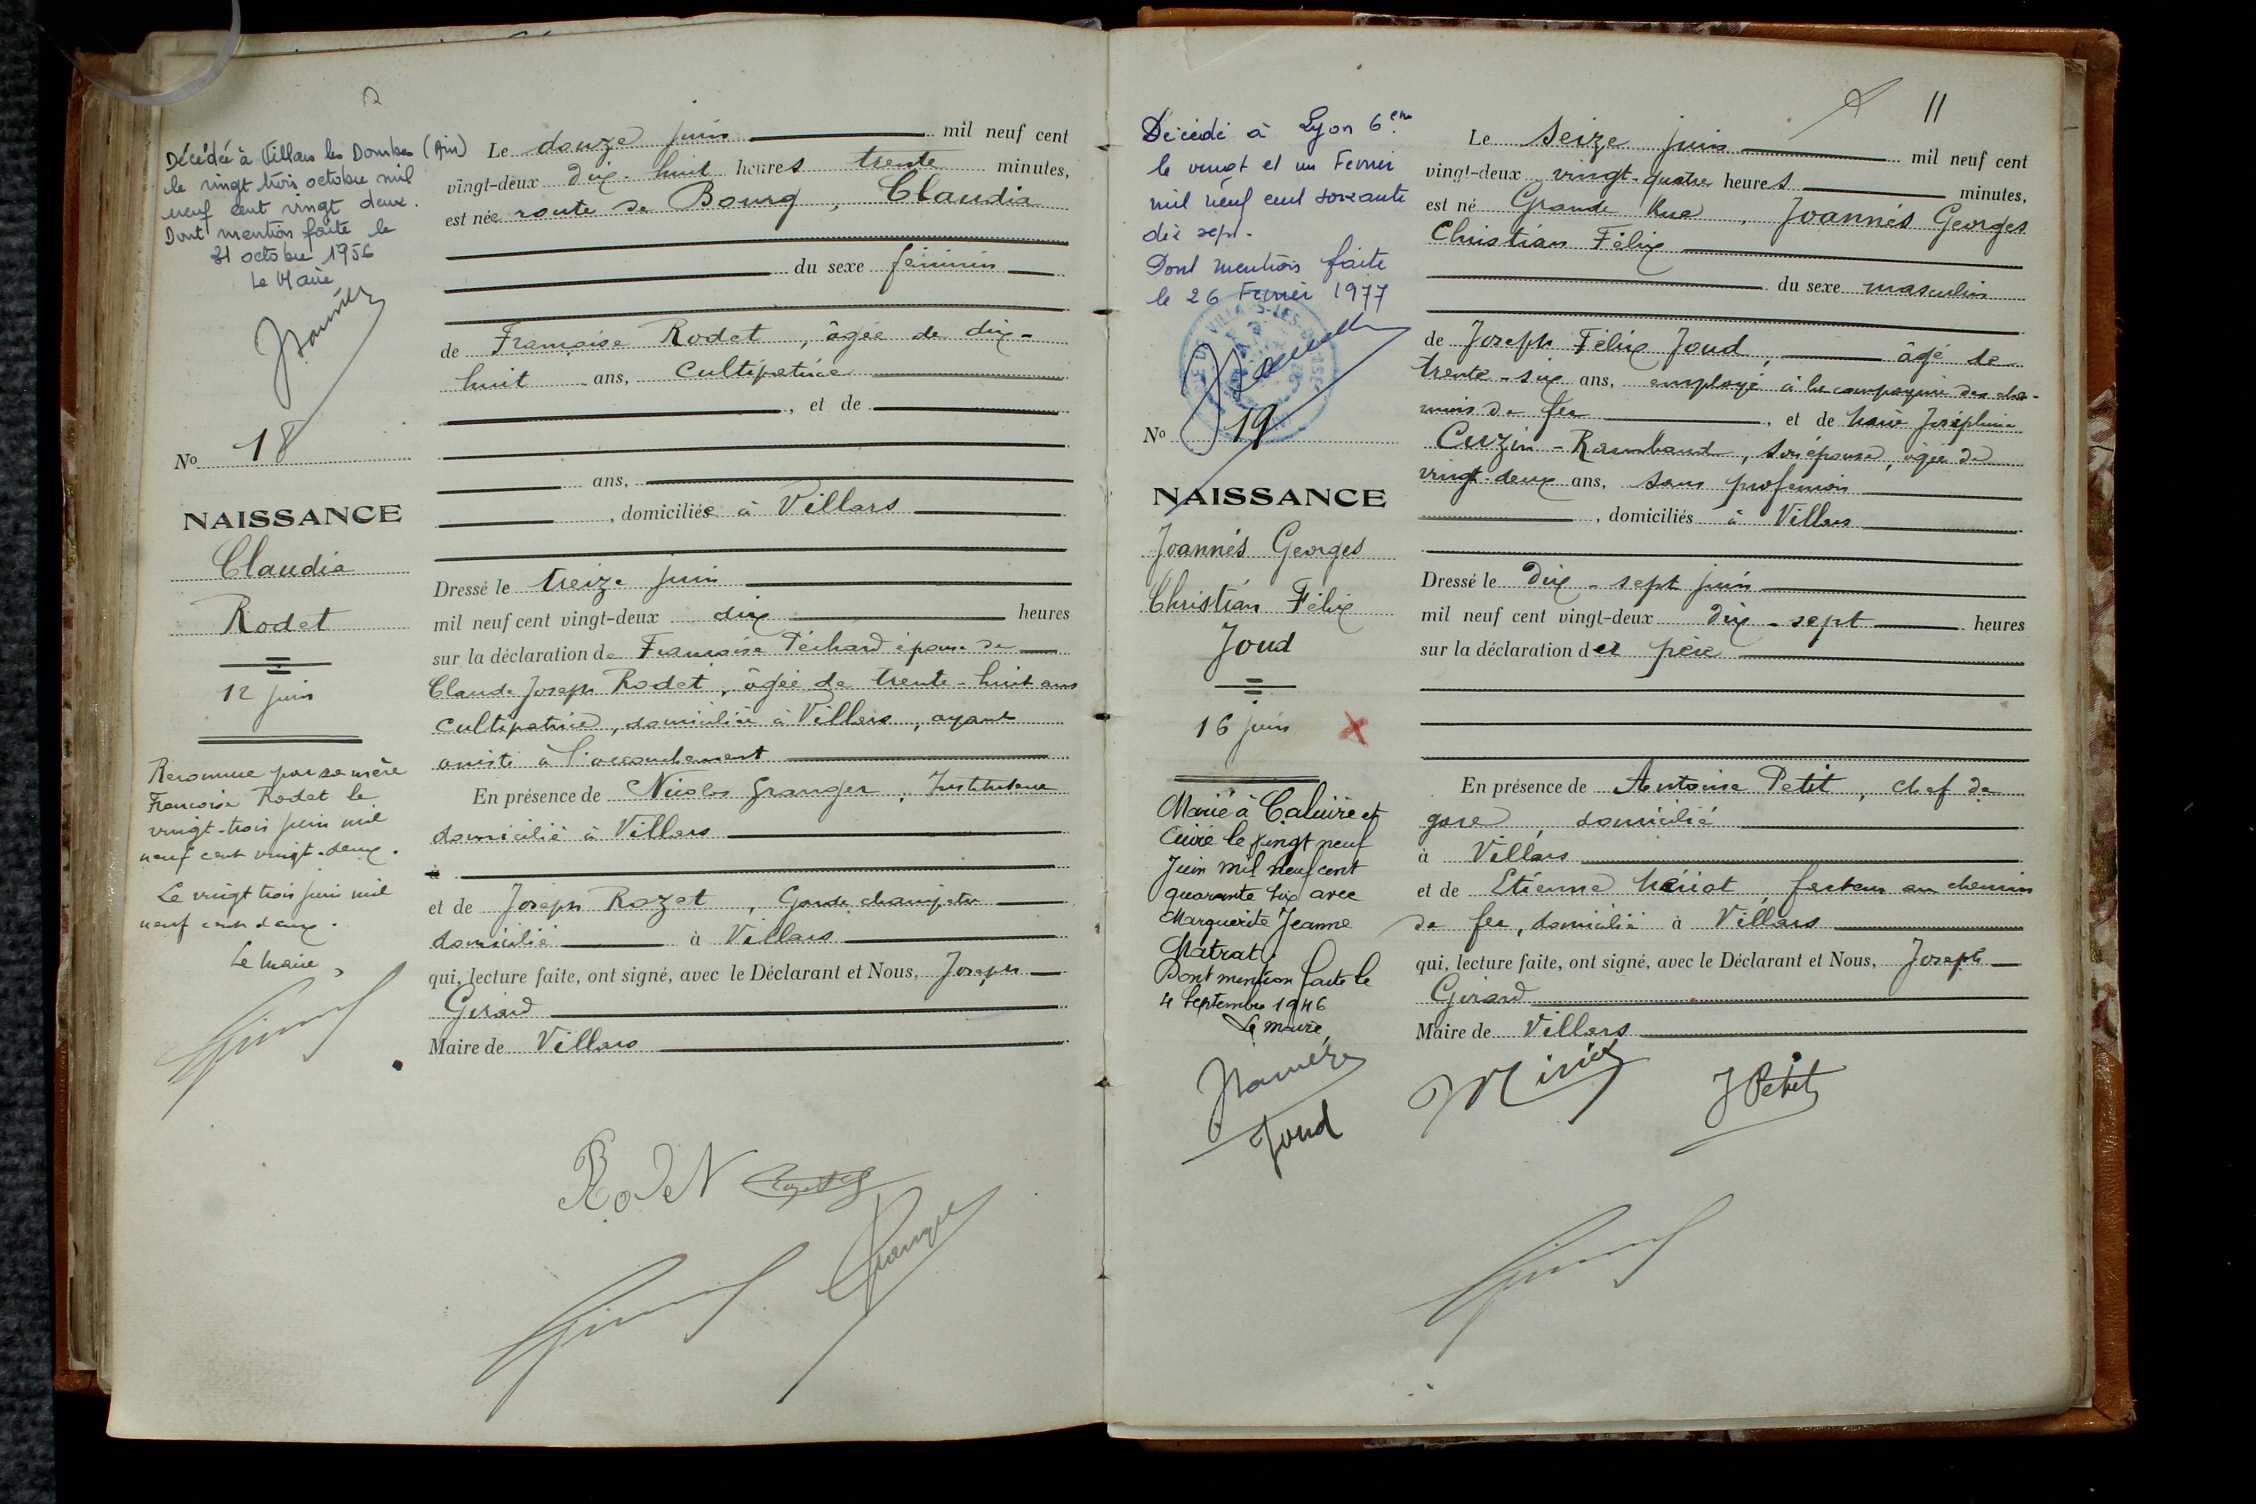 Décédée à Villars les Dombes (Ain)
le vingt trois octobre mil
neuf cent vingt deux.
Dont mention faite le
31 octobre 1956
Le Maire
No 18
NAISSANCE
Claudia
Rodet
12 juin
Reconnue par sa mère
Françoise Rodet le
vingt-trois juin mil
neuf cent vingt-deux.
Le vingt trois juin mil
neuf cent deux.
Le Maire,
Le douze juin mil neuf cent
vingt-deux dix-huit heures trente minutes,
est née route de Bourg, Claudia
du sexe féminin
de Françoise Rodet, âgée de dix-
huit ans, cultivatrice
, et de
ans,
, domiciliée à Villars
Dressé le treize juin
mil neuf cent vingt-deux dix heures
sur la déclaration de Françoise Péchard épouse de
Claude Joseph Rodet, âgée de trente-huit ans
cultivatrice, domiciliée à Villars, ayant
assisté à l'accouchement
En présence de Nicolas Granger, Instituteur
domicilié à Villars
à
et de Joseph Rozet, Garde champêtre
domicilié à Villars
qui, lecture faite, ont signé, avec le Déclarant et Nous, Joseph
Girard
Maire de Villars
RodeN
Granger
11
Décédé à Lyon 6ème
le vingt et un Fevrier
mil neuf cent soixante
dix sept.
Dont mention faite
le 26 Fevrier 1977
No 19
NAISSANCE
Joannès Georges
Christian Félix
Joud
16 juin
Marié à Caluire et
Cuire le vingt neuf
Juin mil neuf cent
quarante six avec
Marguerite Jeanne
Matrat.
Dont mention faite le
4 Septembre 1946
Le maire,
Le seize juin mil neuf cent
vingt-deux vingt-quatre heures minutes,
est né Grande Rue, Joannès Georges
Christian Félix
du sexe masculin
de Joseph Félix Joud, âgé de
trente-six ans, employé à la compagnie des che-
mins de fer, et de Marie Joséphine
Cuzin-Rambaud, son épouse, âgée de
vingt-deux ans, sans profession
, domiciliés à Villars
Dressé le dix-sept juin
mil neuf cent vingt-deux dix-sept heures
sur la déclaration du père
En présence de Antoine Petit, chef de
gare, domicilié
à Villars
et de Etienne Mériat, facteur au chemin
de fer, domicilié à Villars
qui, lecture faite, ont signé, avec le Déclarant et Nous, Joseph
Girard
Maire de Villars
Joud
Petit